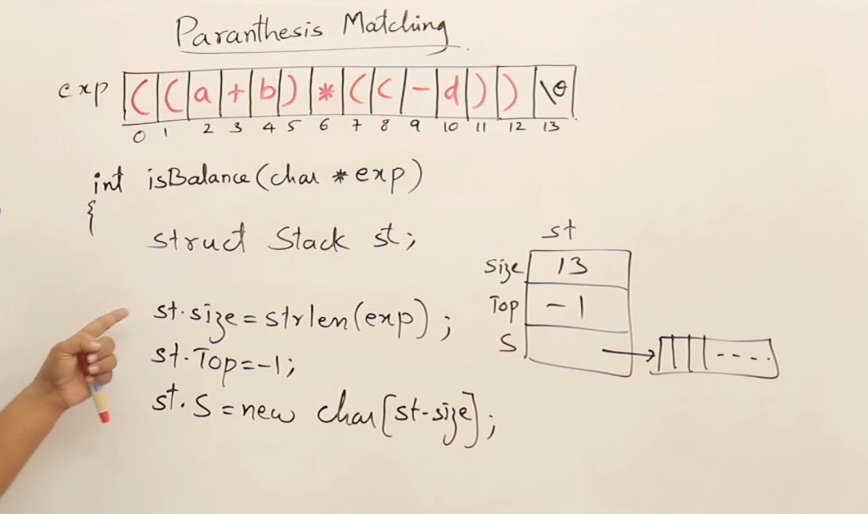 Paranthesis Matching
exp ( ( a + b ) * ( c - d ) ) \0
0 1 2 3 4 5 6 7 8 9 10 11 12 13
int isBalance(char *exp)
{
struct Stack st;
st.size=strlen(exp);
st.Top=-1;
st.S=new char[st-size];
st
Size 13
Top -1
S
----